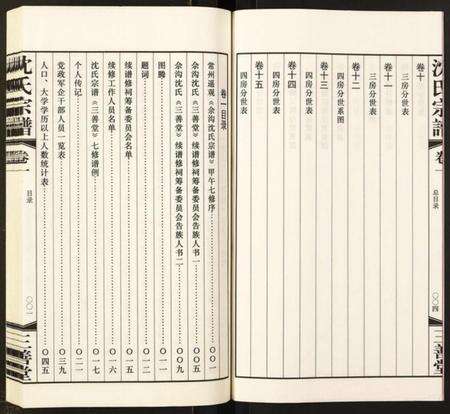 沈氏宗譜
卷一
总目录
〇〇四
三善堂
卷十
三房分世表
卷十一
三房分世表
卷十二
四房分世系图
卷十三
四房分世表
卷十四
四房分世表
卷十五
四房分世表
卷一目录
常州遥观《余沟沈氏宗谱》甲午七修序 〇〇一
余沟沈氏《三善堂》续谱修祠筹备委员会告族人书一 〇〇五
余沟沈氏《三善堂》续谱修祠筹备委员会告族人书二 〇〇九
图腾 〇一一
题词 〇一二
续谱修祠筹备委员会名单 〇一五
续修工作人员名单 〇一六
沈氏宗谱《三善堂》七修谱例 〇一七
个人传记 〇二一
党政军企干部人员一览表 〇三九
人口、大学学历以上人数统计表 〇四五
沈氏宗譜
卷一
目录
〇〇一
三善堂